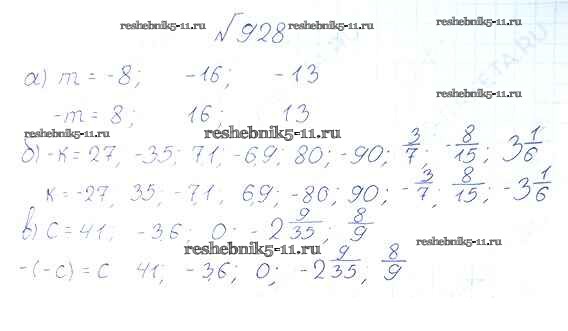 reshebnik5-11.ru reshebnik5-11.ru
√928
reshebnik5-11.ru reshebnik5-11.ru
а) m = -8; -16; -13
-m = 8; 16; 13
reshebnik5-11.ru reshebnik5-11.ru reshebnik5-11.ru
б) -к = 27, -35; 71; -6,9; 80; -90; 3/7; -8/15; 3 1/6
к = -27, 35; -7,1; 6,9; -80; 90; -3/7; 8/15; -3 1/6
в) С = 41; -3,6; 0; -2 9/35; 8/9
reshebnik5-11.ru reshebnik5-11.ru
-(-с) = с 41; -3,6; 0; -2 9/35; 8/9